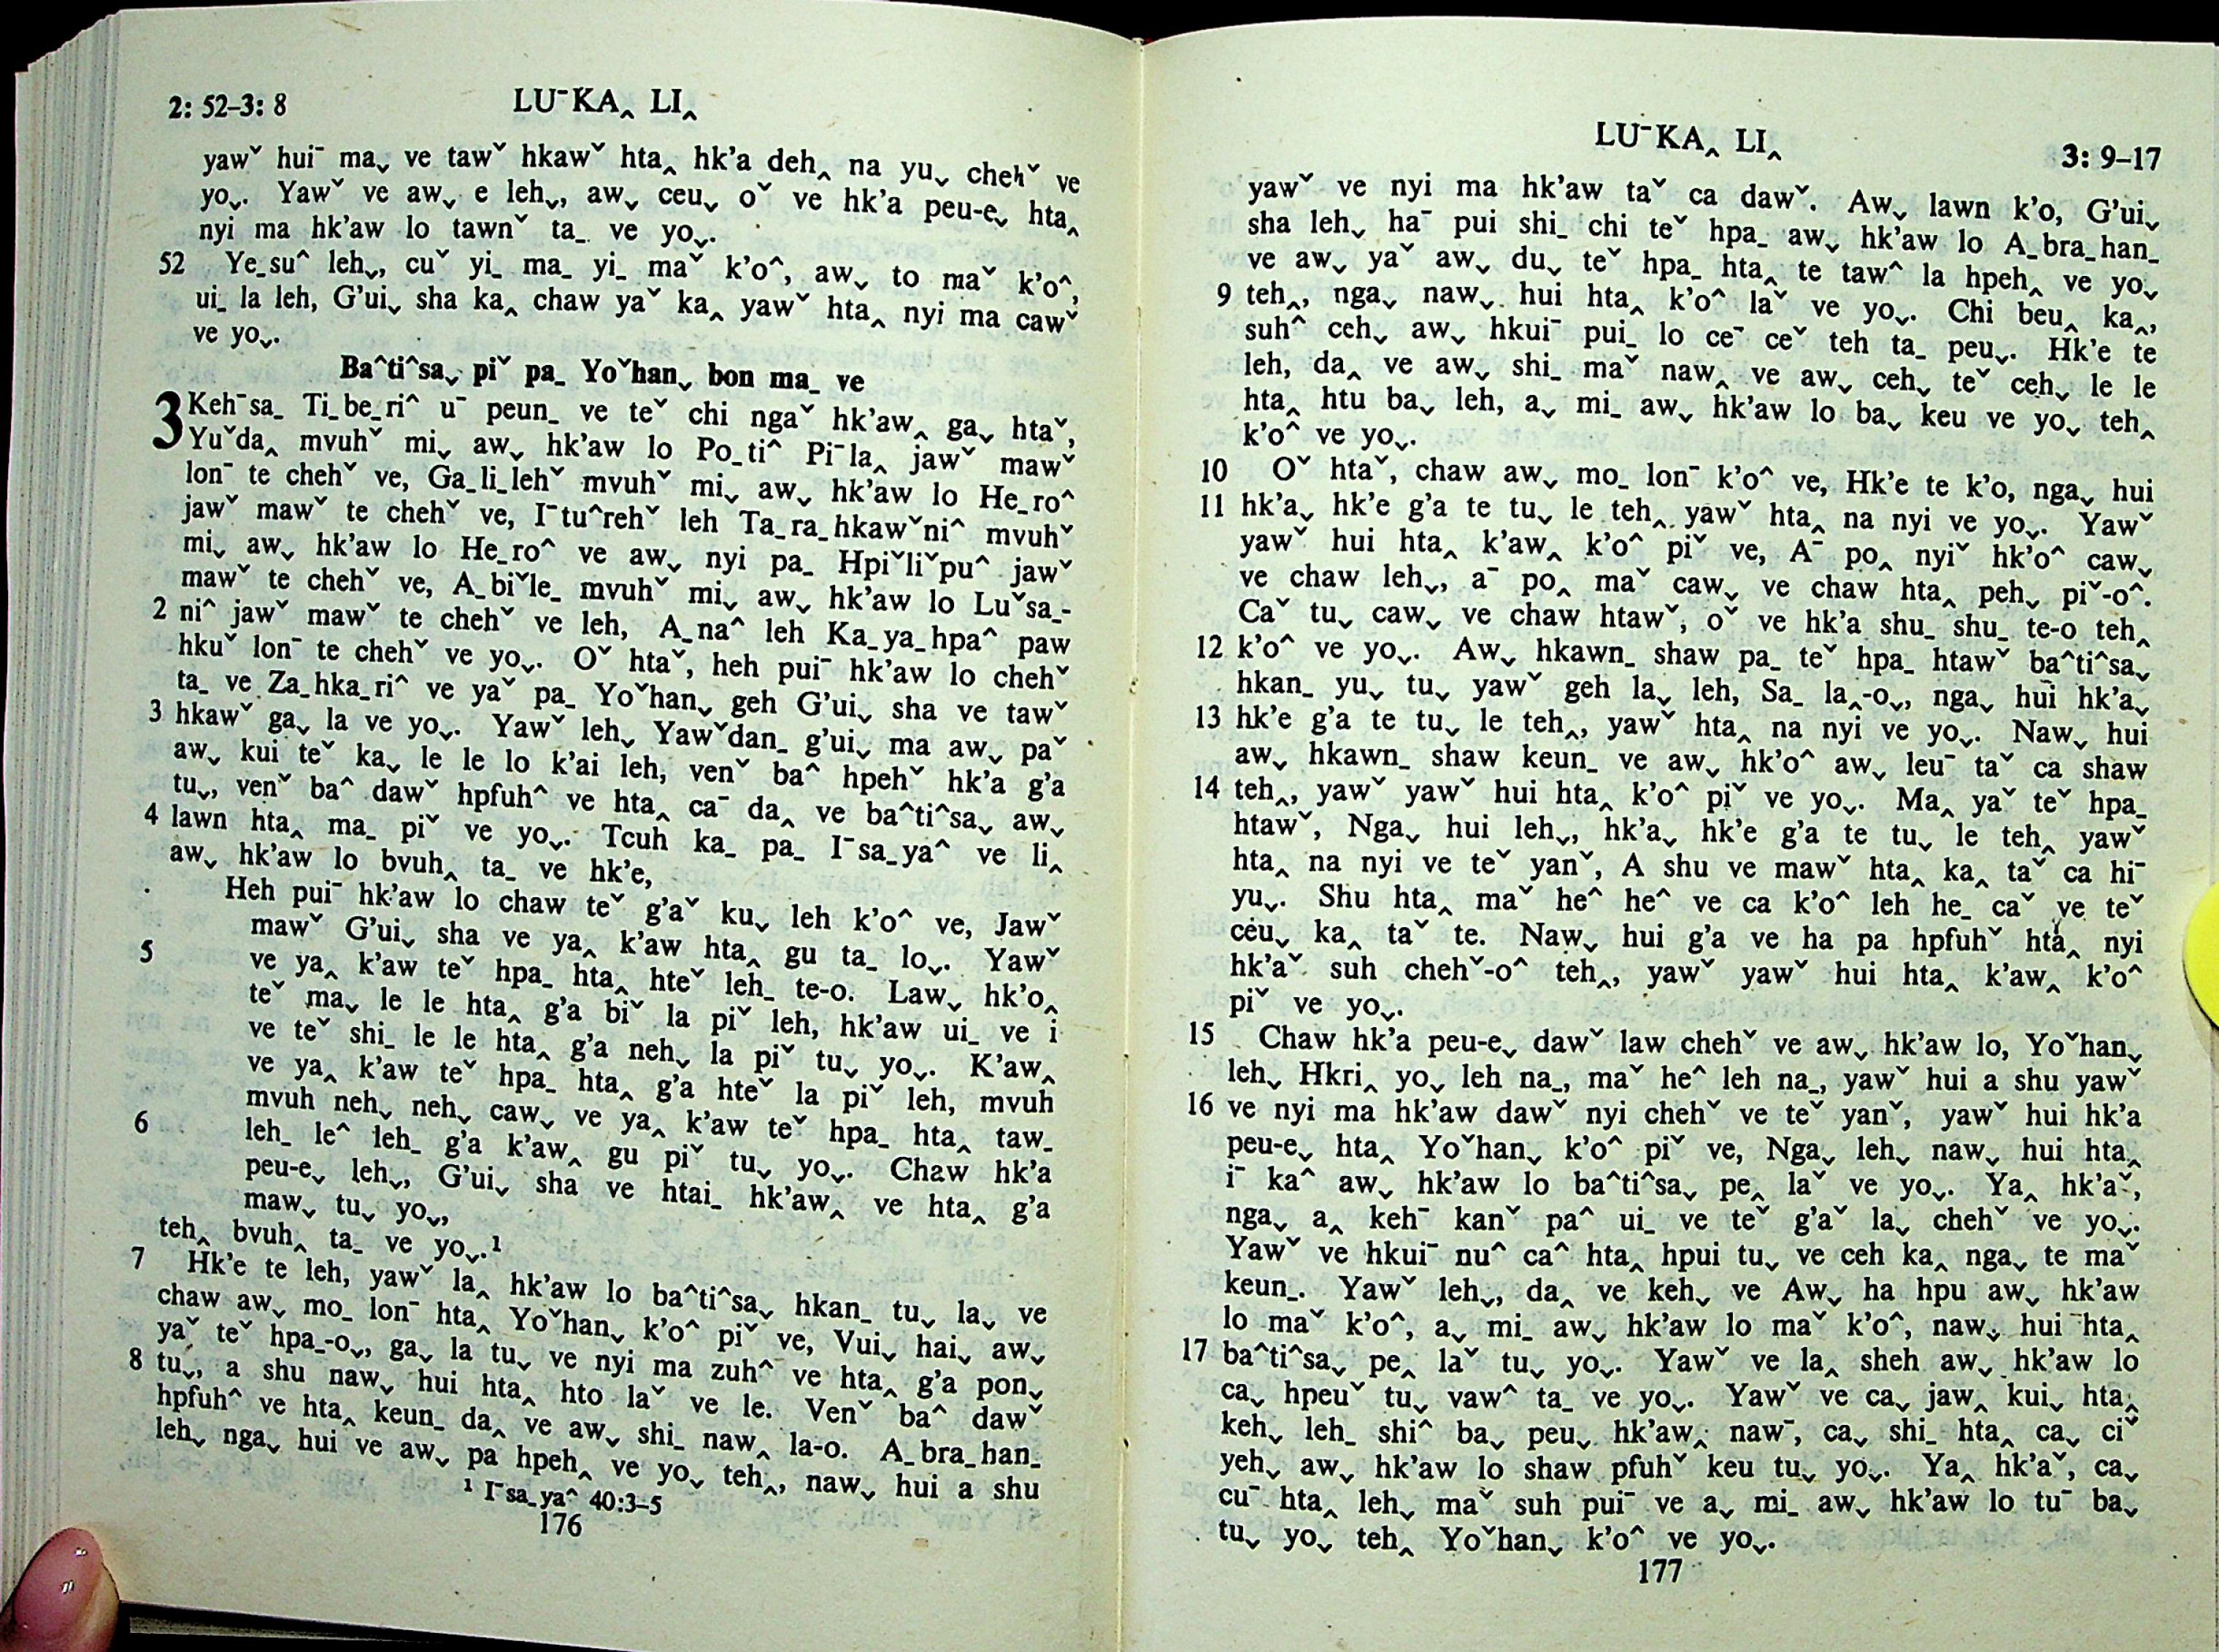 2: 52–3: 8
LUˉKA‸ LI‸
yawˇ huiˉ ma ̬ ve tawˇ hkawˇ hta‸ hk’a deh‸ na yu ̬ chehˇ ve
yo ̬. Yawˇ ve aw ̬ e leh ̬, aw ̬ ceu ̬ oˇ ve hk’a peu-e ̬ hta‸
nyi ma hk’aw lo tawnˇ ta ˍ ve yo ̬.
52 Yeˍsu^ leh ̬, cuˇ yiˍ maˍ yiˍ maˇ k’o^, aw ̬ to maˇ k’o^,
uiˍ la leh, G’ui ̬ sha ka‸ chaw yaˇ ka‸ yawˇ hta‸ nyi ma cawˇ
ve yo ̬.
Ba^ti^sa ̬ piˇ paˍ Yoˇhan ̬ bon maˍ ve
3 Kehˉsaˍ Tiˍbeˍri^ uˉ peunˍ ve teˇ chi ngaˇ hk’aw‸ ga ̬ htaˇ,
Yuˇda‸ mvuhˇ mi ̬ aw ̬ hk’aw lo Poˍti^ Piˉla‸ jawˇ mawˇ
lonˉ te chehˇ ve, Gaˍliˍlehˇ mvuhˇ mi ̬ aw ̬ hk’aw lo Heˍro^
jawˇ mawˇ te chehˇ ve, Iˉtu^rehˇ leh Taˍraˍhkawˇni^ mvuhˇ
mi ̬ aw ̬ hk’aw lo Heˍro^ ve aw ̬ nyi paˍ Hpiˇliˇpu^ jawˇ
mawˇ te chehˇ ve, Aˍbiˇleˍ mvuhˇ mi ̬ aw ̬ hk’aw lo Luˇsaˍ-
2 ni^ jawˇ mawˇ te chehˇ ve leh, Aˍna^ leh Kaˍyaˍhpa^ paw
hkuˇ lonˉ te chehˇ ve yo ̬. Oˇ htaˇ, heh puiˉ hk’aw lo chehˇ
taˍ ve Zaˍhkaˍri^ ve yaˇ paˍ Yoˇhan ̬ geh G’ui ̬ sha ve tawˇ
3 hkawˇ ga ̬ la ve yo ̬. Yawˇ leh ̬ Yawˇdanˍ g’ui ̬ ma aw ̬ paˇ
aw ̬ kui teˇ ka ̬ le le lo k’ai leh, venˇ ba^ hpehˇ hk’a g’a
tu ̬, venˇ ba^ dawˇ hpfuh^ ve hta‸ caˉ da‸ ve ba^ti^sa ̬ aw ̬
4 lawn hta‸ maˍ piˇ ve yo ̬. Tcuh kaˍ paˍ Iˉsaˍya^ ve li‸
aw ̬ hk’aw lo bvuh‸ taˍ ve hk’e,
Heh puiˉ hk’aw lo chaw teˇ g’aˇ ku ̬ leh k’o^ ve, Jawˇ
mawˇ G’ui ̬ sha ve ya‸ k’aw hta‸ gu taˍ lo ̬. Yawˇ
5 ve ya‸ k’aw teˇ hpaˍ hta‸ hteˇ lehˍ te-o. Law ̬ hk’o‸
teˇ ma ̬ le le hta‸ g’a biˇ la piˇ leh, hk’aw uiˍ ve i
ve teˇ shiˍ le le hta‸ g’a neh ̬ la piˇ tu ̬ yo ̬. K’aw‸
ve ya‸ k’aw teˇ hpaˍ hta‸ g’a hteˇ la piˇ leh, mvuh
mvuh neh ̬ neh ̬ caw ̬ ve ya‸ k’aw teˇ hpaˍ hta‸ tawˍ
6 lehˍ le^ lehˍ g’a k’aw‸ gu piˇ tu ̬ yo ̬. Chaw hk’a
peu-e ̬ leh ̬, G’ui ̬ sha ve htaiˍ hk’aw‸ ve hta‸ g’a
maw ̬ tu ̬ yo ̬,
teh‸ bvuh‸ taˍ ve yo ̬.¹
7 Hk’e te leh, yawˇ la‸ hk’aw lo ba^ti^sa ̬ hkanˍ tu ̬ la ̬ ve
chaw aw ̬ moˍ lonˉ hta‸ Yoˇhan ̬ k’o^ piˇ ve, Vui ̬ hai ̬ aw ̬
yaˇ teˇ hpaˍ-o ̬, ga ̬ la tu ̬ ve nyi ma zuh^ ve hta‸ g’a pon ̬
8 tu ̬, a shu naw ̬ hui hta‸ hto laˇ ve le. Venˇ ba^ dawˇ
hpfuh^ ve hta‸ keunˍ da‸ ve aw ̬ shiˍ naw‸ la-o. Aˍbraˍhanˍ
leh ̬ nga ̬ hui ve aw ̬ pa hpeh‸ ve yo ̬ teh‸, naw ̬ hui a shu
¹ Iˉsaˍya^ 40:3–5
176
LUˉKA‸ LI‸
3: 9–17
yawˇ ve nyi ma hk’aw taˇ ca dawˇ. Aw ̬ lawn k’o, G’ui ̬
sha leh ̬ haˉ pui shiˍ chi teˇ hpaˍ aw ̬ hk’aw lo Aˍbraˍhanˍ
ve aw ̬ yaˇ aw ̬ du ̬ teˇ hpaˍ hta‸ te taw^ la hpeh‸ ve yo ̬
9 teh‸, nga ̬ naw ̬ hui hta‸ k’o^ laˇ ve yo ̬. Chi beu‸ ka‸,
suh^ ceh ̬ aw ̬ hkuiˉ puiˍ lo ceˉ ceˇ teh taˍ peu ̬. Hk’e te
leh, da‸ ve aw ̬ shiˍ maˇ naw‸ ve aw ̬ ceh ̬ teˇ ceh ̬ le le
hta‸ htu ba ̬ leh, a ̬ miˍ aw ̬ hk’aw lo ba ̬ keu ve yo ̬ teh‸
k’o^ ve yo ̬.
10 Oˇ htaˇ, chaw aw ̬ moˍ lonˉ k’o^ ve, Hk’e te k’o, nga ̬ hui
11 hk’a ̬ hk’e g’a te tu ̬ le teh‸ yawˇ hta‸ na nyi ve yo ̬. Yawˇ
yawˇ hui hta‸ k’aw‸ k’o^ piˇ ve, Aˉ po‸ nyiˇ hk’o^ caw ̬
ve chaw leh ̬, aˉ po‸ maˇ caw ̬ ve chaw hta‸ peh ̬ piˇ-o^.
Caˇ tu ̬ caw ̬ ve chaw htawˇ, oˇ ve hk’a shuˍ shuˍ te-o teh‸
12 k’o^ ve yo ̬. Aw ̬ hkawnˍ shaw paˍ teˇ hpaˍ htawˇ ba^ti^sa ̬
hkanˍ yu ̬ tu ̬ yawˇ geh la ̬ leh, Saˍ la‸-o ̬, nga ̬ hui hk’a ̬
13 hk’e g’a te tu ̬ le teh‸, yawˇ hta‸ na nyi ve yo ̬. Naw ̬ hui
aw ̬ hkawnˍ shaw keunˍ ve aw ̬ hk’o^ aw ̬ leuˉ taˇ ca shaw
14 teh‸, yawˇ yawˇ hui hta‸ k’o^ piˇ ve yo ̬. Ma‸ yaˇ teˇ hpaˍ
htawˇ, Nga ̬ hui leh ̬, hk’a ̬ hk’e g’a te tu ̬ le teh‸ yawˇ
hta‸ na nyi ve teˇ yanˇ, A shu ve mawˇ hta‸ ka‸ taˇ ca hiˉ
yu ̬. Shu hta‸ maˇ he^ he^ ve ca k’o^ leh heˍ caˇ ve teˇ
ceu ̬ ka‸ taˇ te. Naw ̬ hui g’a ve ha pa hpfuhˇ hta‸ nyi
hk’aˇ suh chehˇ-o^ teh‸, yawˇ yawˇ hui hta‸ k’aw‸ k’o^
piˇ ve yo ̬.
15 Chaw hk’a peu-e ̬ dawˇ law chehˇ ve aw ̬ hk’aw lo, Yoˇhan ̬
leh ̬ Hkri‸ yo ̬ leh naˍ, maˇ he^ leh naˍ, yawˇ hui a shu yawˇ
16 ve nyi ma hk’aw dawˇ nyi chehˇ ve teˇ yanˇ, yawˇ hui hk’a
peu-e ̬ hta‸ Yoˇhan ̬ k’o^ piˇ ve, Nga ̬ leh ̬ naw ̬ hui hta‸
iˉ ka^ aw ̬ hk’aw lo ba^ti^sa ̬ pe‸ laˇ ve yo ̬. Ya‸ hk’aˇ,
nga ̬ a‸ kehˉ kanˇ pa^ uiˍ ve teˇ g’aˇ la ̬ chehˇ ve yo ̬.
Yawˇ ve hkuiˉ nu^ ca^ hta‸ hpui tu ̬ ve ceh ka‸ nga ̬ te maˇ
keunˍ. Yawˇ leh ̬, da‸ ve keh ̬ ve Aw ̬ ha hpu aw ̬ hk’aw
lo maˇ k’o^, a ̬ miˍ aw ̬ hk’aw lo maˇ k’o^, naw ̬ hui hta‸
17 ba^ti^sa ̬ pe‸ laˇ tu ̬ yo ̬. Yawˇ ve la‸ sheh aw ̬ hk’aw lo
ca ̬ hpeuˇ tu ̬ vaw^ taˍ ve yo ̬. Yawˇ ve ca ̬ jaw‸ kui ̬ hta‸
keh ̬ lehˍ shi^ ba ̬ peu ̬ hk’aw‸ nawˉ, ca ̬ shiˍ hta‸ ca ̬ ciˇ
yeh ̬ aw ̬ hk’aw lo shaw pfuhˇ keu tu ̬ yo ̬. Ya‸ hk’aˇ, ca ̬
cuˉ hta‸ leh ̬ maˇ suh puiˉ ve a ̬ miˍ aw ̬ hk’aw lo tuˉ ba ̬
tu ̬ yo ̬ teh‸ Yoˇhan ̬ k’o^ ve yo ̬.
177